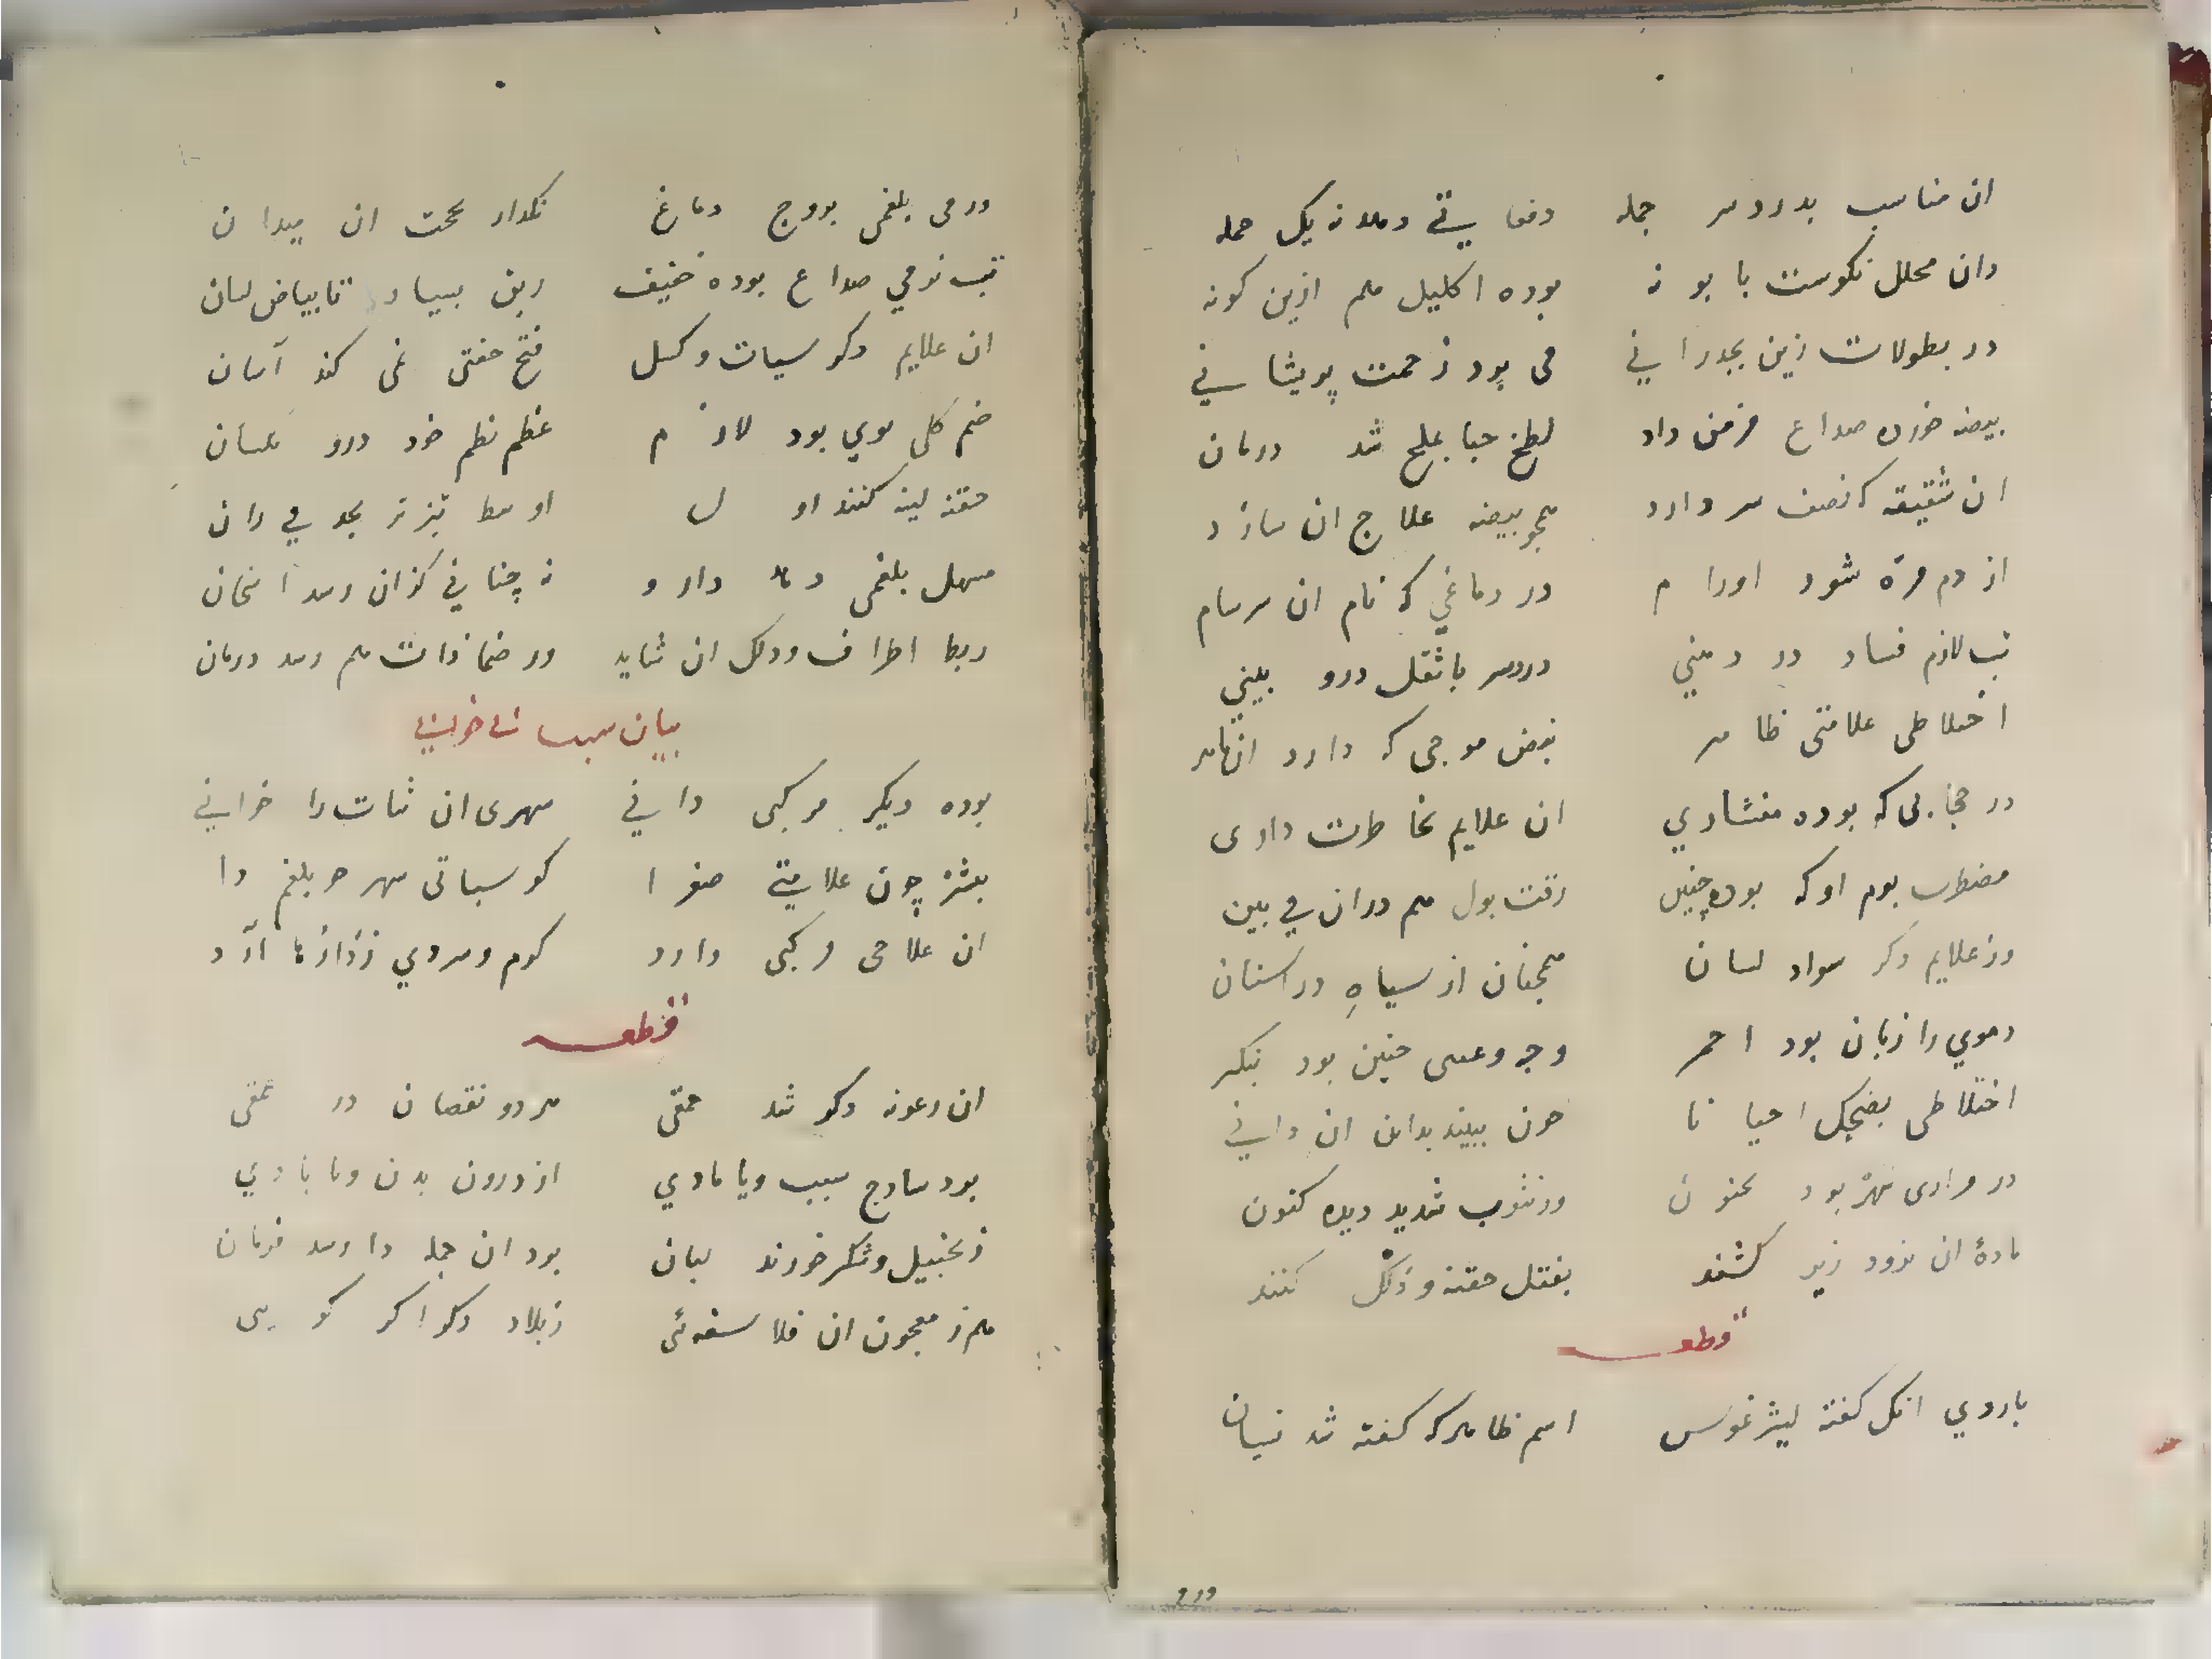 ان مناسب بدردسر جمله دفعا یتی دهد نه یک حمله
دان محلل نکوست بابونه بوده اکلیل هم ازین کونه
در بطولات زین بجدرانی می برد زحمت پریشانی
بیضه خوده صداع مزمن داد لطخ حبا بملح شد درمان
ان شقیقه که نصف سر دارد همچو بیضه علاج ان سازد
از دم مره شود اورام در دماغی که نام ان سرسام
تب لازم فساد در دهنی دردسر با ثقل درو بینی
اختلاطی علامتی ظاهر نبض موجی که دارد ان
در حجابی که بوده منشاری ان علایم بخاطرت داری
مضطرب بوم او که بوده چنین رقت بول هم دران می بین
وز علایم دکر سواد لسان همچنان از سیاه در اسنان
دموی را زبان بود احمر وجه وعینی چنین بود بنکر
اختلاطی بضحک احیانا چون ببیند بداند ان دانی
در مراری بود جنون وز شدید دیده کنون
مادهٔ ان فرود زیر کشند بفتل حقنه و دلک کنند
قطعه
باردی انکه کفته لیثرغوس اسم ظاهر که کفته شد نسیان
درم
ورمی بلغمی بروج دماغ نکدارد بحجت ان میدان
تب نومی صداع بوده خفیف ریق بسیار تا بیاض لسان
ان علایم دکر سبات و کسل فتح جفتی نمی کند آسان
ضم کلی موی بود لازم عظم نظم خود درو یکسان
حقنه لینه کنند اول اوسط تیزتر بجد می دان
مسهل بلغمی دهد دارو نه چنانی کزان رسد
ربط اطراف و دلک ان شاید ور ضماذات هم رسد درمان
بیان سبات
بوده دیکر مرکبی دانی سهری ان ثبات را خوانی
بیشتر چون علامتی صفرا کو سباتی سهر چو بلغم را
ان علاجی مرکبی دارد کرم و سردی ز اندازها آرد
قطعه
ان رعونه دکر شد حمقی هر دو نقصان در عمقی
بود سادج سبب و یا مادی از درون بدن و یا بادی
زنجبیل و شکر خورند لبان بود ان جمله را رسد فرمان
هم ز معجون ان فلاسفه‌ئی زبلاد دکر اکر